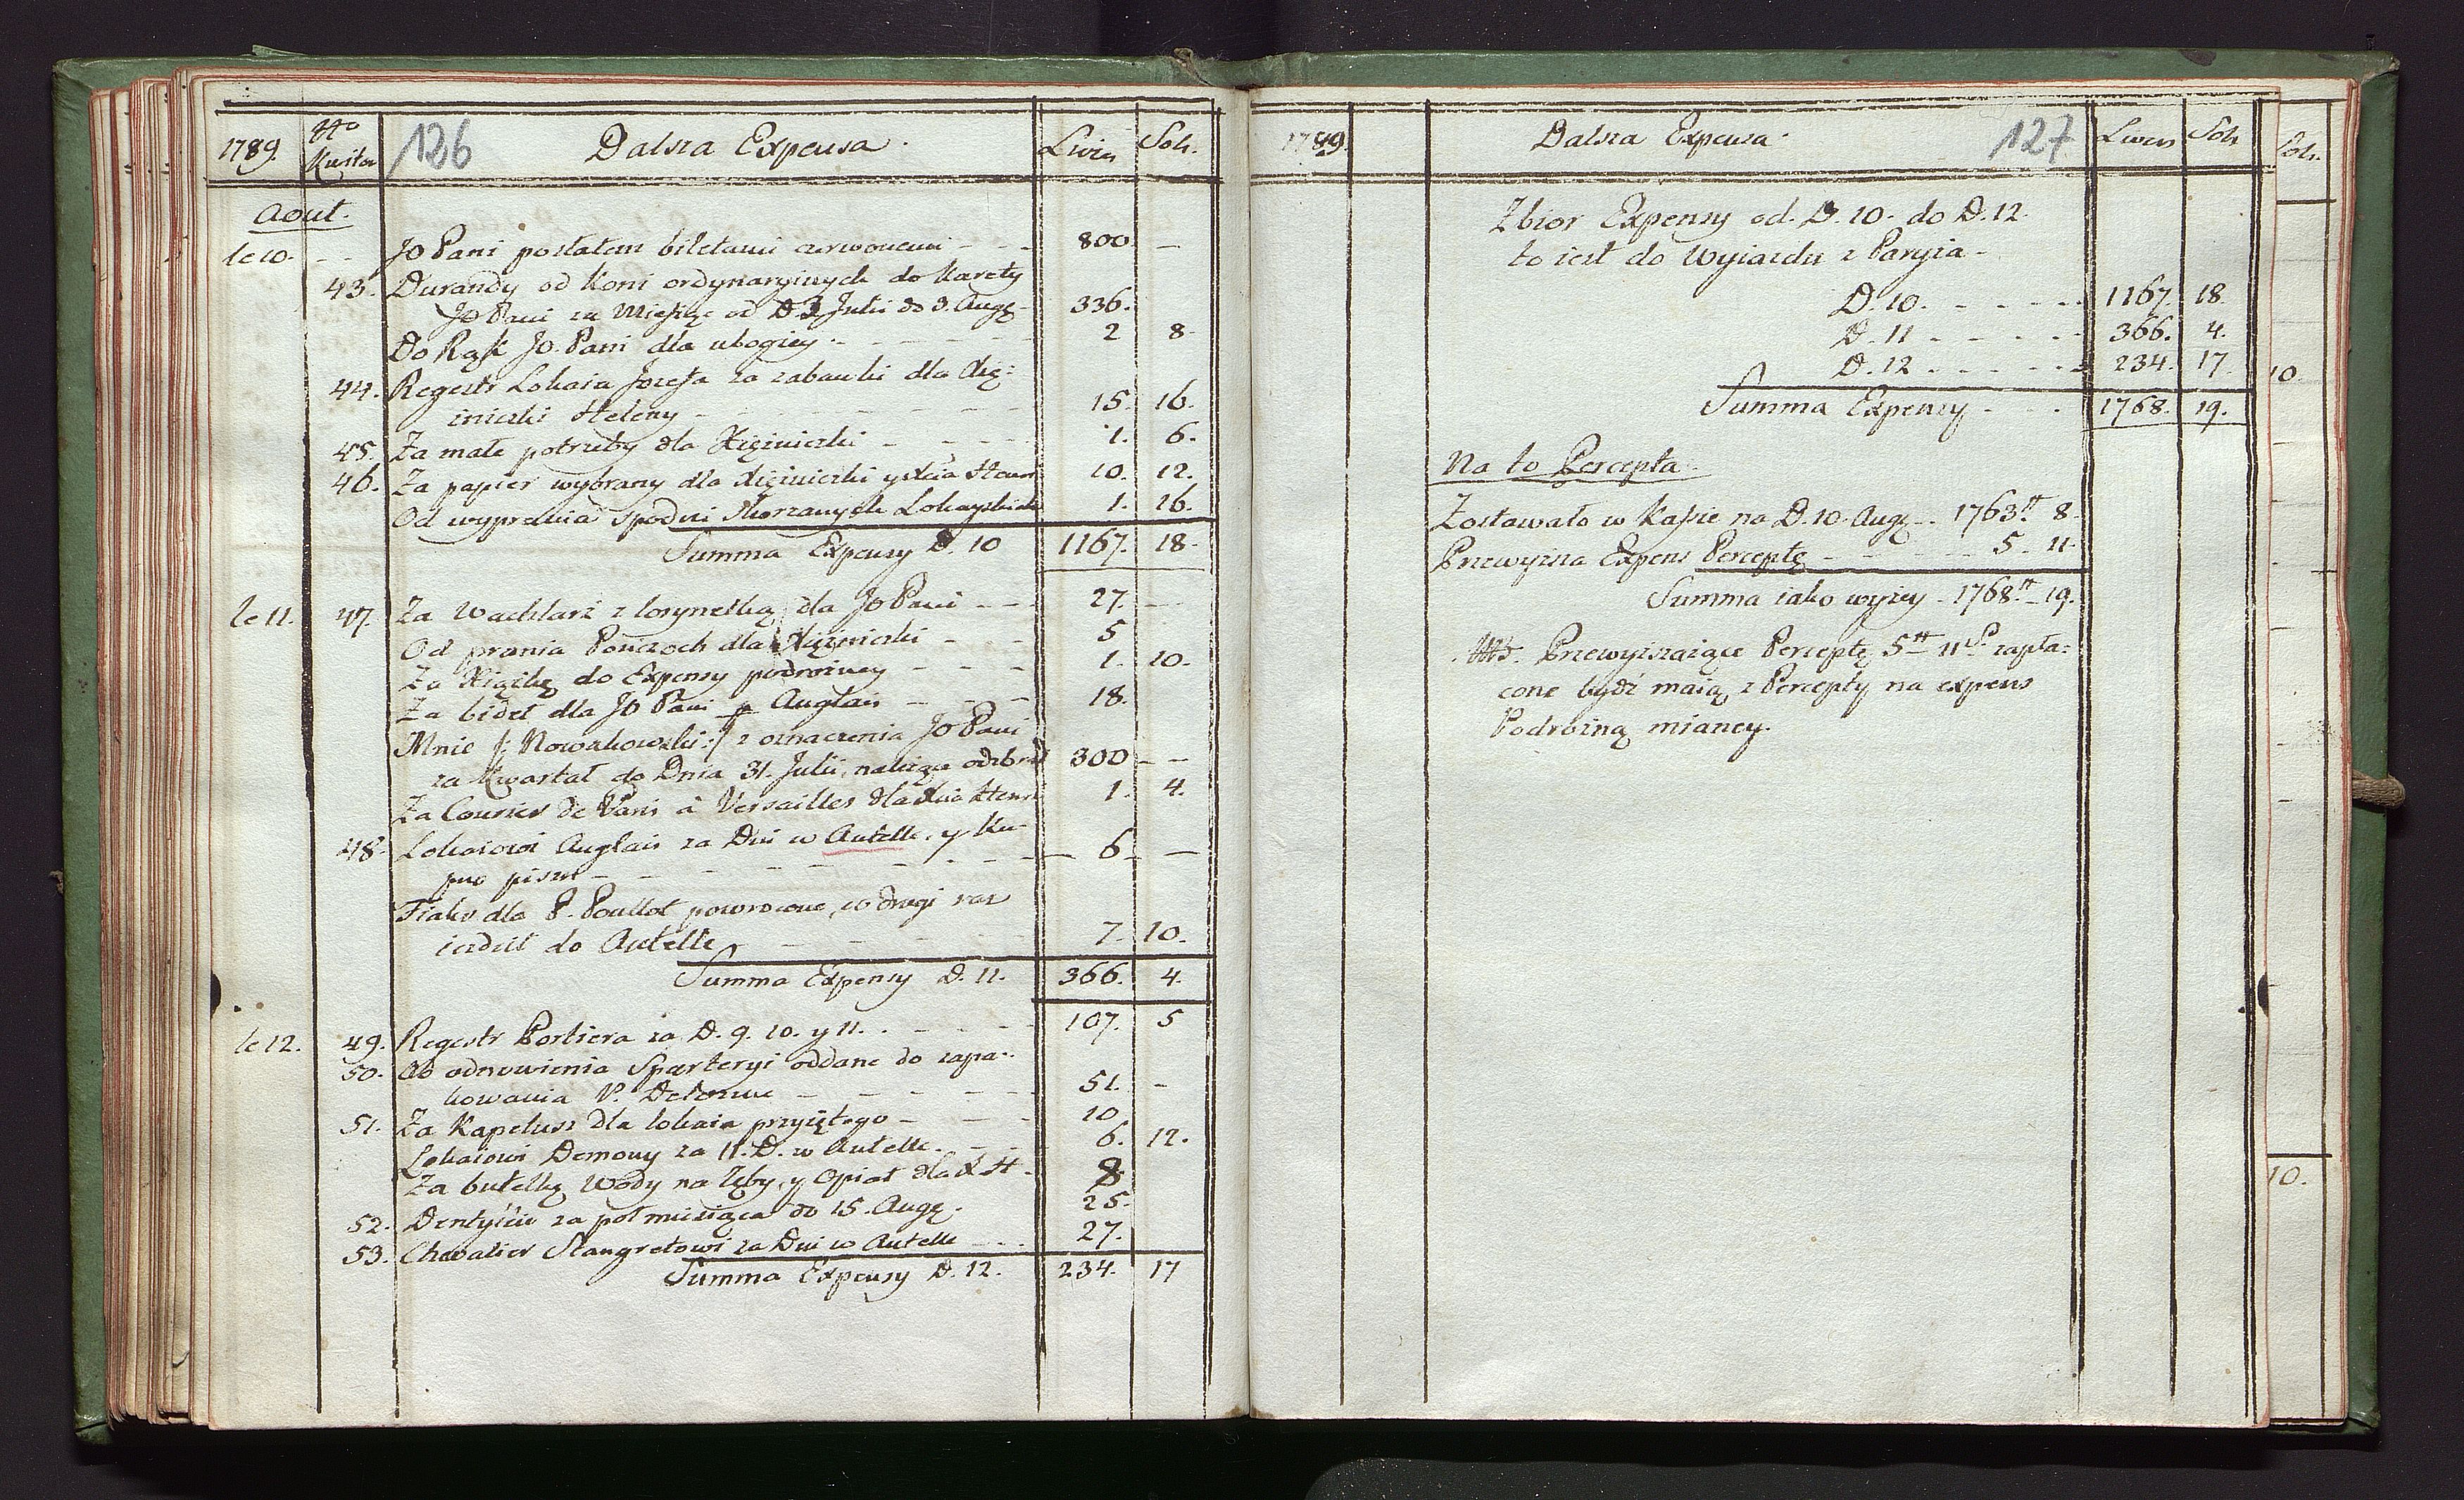 1789. No Kwitów 126 Dalsza Expensa. Liwr. Sol.
Aout.
le 10. - - JO Pani posłałem biletami czerwonemi - - - 800. —
43. Durandy od Koni ordynaryinych do Karety
JO Pani za Miesiąc od D 3 Julii do 3. Augę - 336.
Do Rąk JO. Pani dla ubogiey - - - - 2 8
44. Regestr Lokaia Jozefa za zabawki dla Xię:
żniczki Heleny - - - - 15. 16.
45. Za małe potrzeby dla Xiężniczki - - - 1. 6.
46. Za papier wybrany dla Xiężniczki y Xcia Henr 10. 12.
Od wyprania spodni skorzanych Lokayskich 1. 16.
Summa Expensy D. 10 1167. 18.
le 11. 47. Za Wachlarz z lorynetką dla JO Pani - - - 27. —
Od prania Pończoch dla Xiężniczki - - 5
Za Xiążkę do Expensy podrożney - - - 1. 10.
Za bidet dla JO Pani p Anglais - - - 18.
Mnie /: Nowakowski :/ z oznaczenia JO Pani
za Kwartał do Dnia 31. Julii, należące odebrał 300 - -
Za Courier de Paris à Versailles dla Xcia Henr 1. 4.
48. Lokaiowi Anglais za Dni w Autelle. y Ku-
pno pism - - - - - 6. —
Fiakr dla P. Poullot powrocone, w drugi raz
iezdził do Autelle - - - - 7. 10.
Summa Expensy D. 11. 366. 4.
le 12. 49. Regestr Portiera za D. 9. 10. y 11. . - - - 107. 5
50. Od odnowienia Sparteryi oddane do zapa-
kowania P. - - - - 51. -
51. Za Kapelusz dla lokaia przyiętego - - - 10
Lokaiowi Demony za 11. D. w Autelle. - - 6. 12.
Za butelkę Wody na Zęby, y Opiat dla X H - 8
52. Dentyście za poł miesiąca do 15. Augę. 25.
53. Chevalier Stangretowi za Dni w Autelle - - - 27.
Summa Expensy D. 12. 234. 17
1789. Dalsza Expensa. 127 Liwr Sol.
Zbior Expensy od. D. 10. do D. 12.
to iest do Wyiazdu z Paryża -
D. 10. - - - - 1167. 18.
D. 11 - - - - 366. 4.
D. 12 - - - - 234. 17.
Summa Expensy - - - 1768. 19.
Na to Percepta.
Zostawało w Kassie na D. 10. Augę - . 1763.tt 8.
Przewyższa Expens Perceptę - - - 5. 11.
Summa iako wyżey - 1768.tt - 19.
NB. Przewyższaiące Perceptę 5tt 11 S. zapła:
cone bydź maią z Percepty na expens
Podróżną mianey.
Sol.
10.
10.